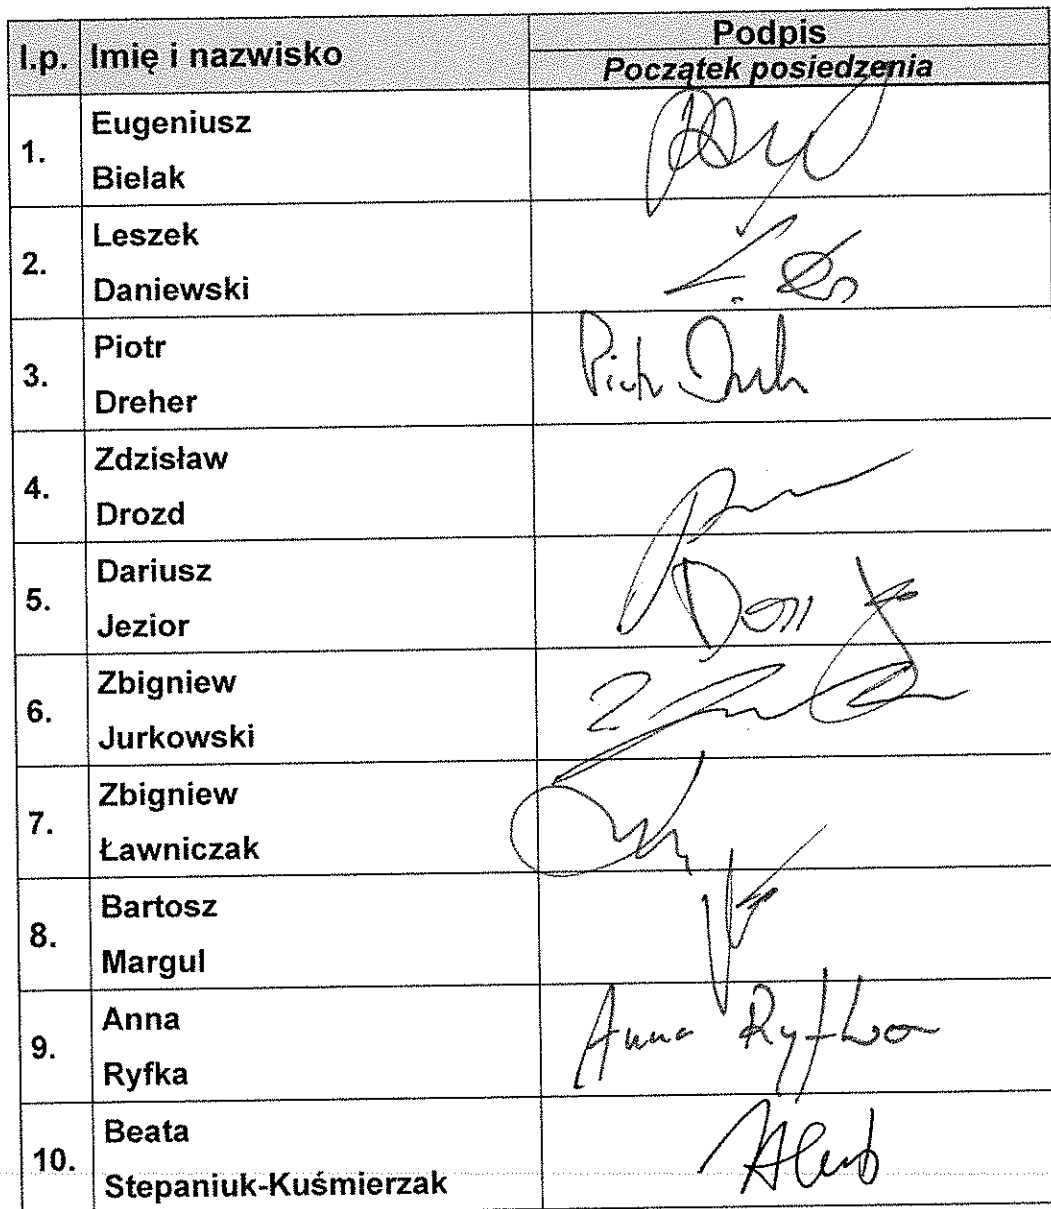 l.p. Imię i nazwisko Podpis
Początek posiedzenia
1. Eugeniusz
Bielak
2. Leszek
Daniewski
3. Piotr
Dreher
Piotr
4. Zdzisław
Drozd
5. Dariusz
Jezior
6. Zbigniew
Jurkowski
7. Zbigniew
Ławniczak
8. Bartosz
Margul
9. Anna
Ryfka
Anna Ryfka
10. Beata
Stepaniuk-Kuśmierzak